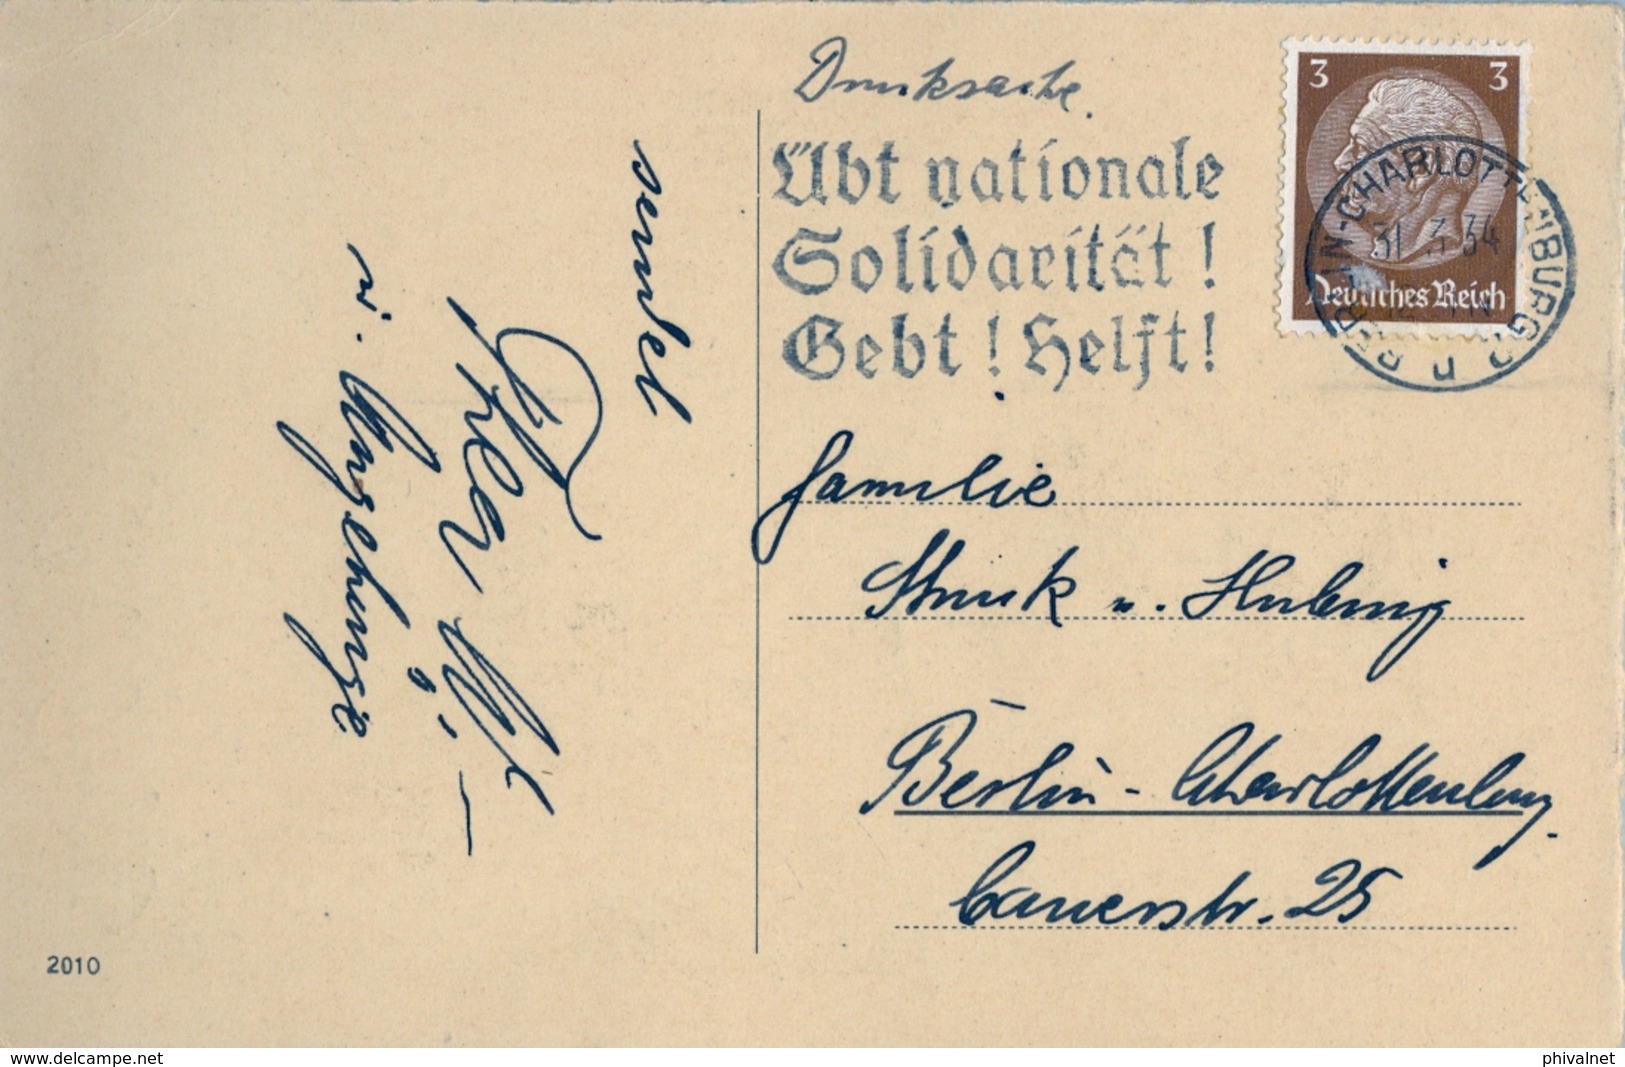 Drucksache.
Übt nationale
Solidarität!
Gebt! Helft!
3 3
Deutsches Reich
BERLIN-CHARLOTTENBURG
31.3.34
sendet
u. Angehörige
Familie
Struck u.
Berlin-Charlottenburg.
Cauerstr. 25
2010
www.delcampe.net
phivalnet